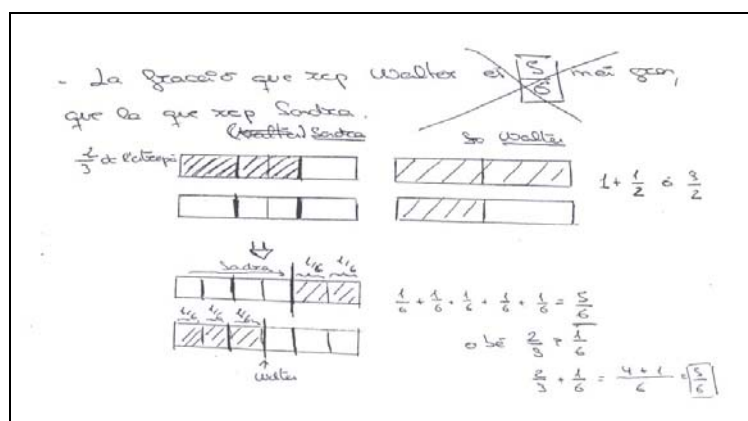 - La fracció que rep Walter és 5/6 més gran,
que la que rep Sandra.
(Walter) Sandra
Walter
2/3 de l'entrepà
1 + 1/2 ó 3/2
Sandra
1/6 1/6
1/6 1/6 1/6
Walter
1/6 + 1/6 + 1/6 + 1/6 + 1/6 = 5/6
o bé 2/3 1/6
2/3 + 1/6 = 4+1/6 = 5/6